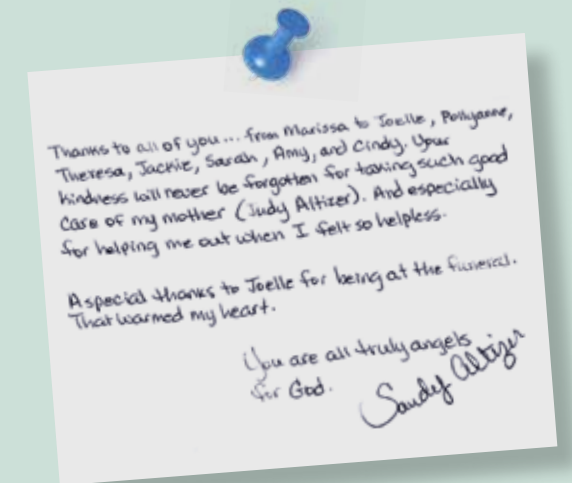 Thanks to all of you... from Marissa to Joelle, Pollyanne,
Theresa, Jackie, Sarah, Amy, and Cindy. Your
kindness will never be forgotten for taking such good
care of my mother (Judy Altizer). And especially
for helping me out when I felt so helpless.
A special thanks to Joelle for being at the funeral.
That warmed my heart.
You are all truly angels
for God.
Sandy Altizer